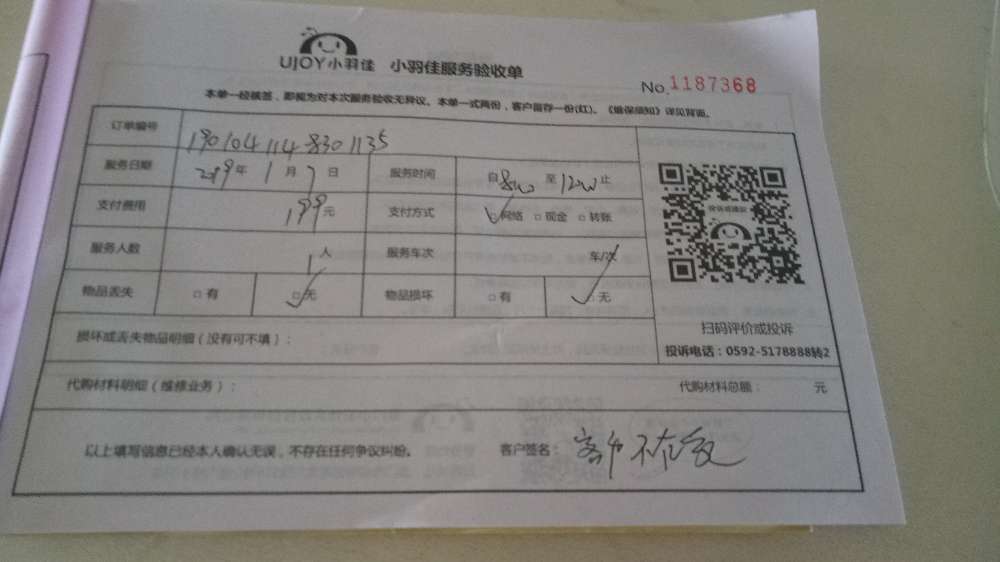 UJOY小羽佳 小羽佳服务验收单
No.1187368
本单一经核签，即视为对本次服务验收无异议。本单一式两份，客户留存一份(红)。《维保须知》详见背面。
订单编号 1901041148301135
服务日期 2019年1月7日 服务时间 自8:00至12:00止
支付费用 199元 支付方式 ☑网络 □现金 □转账
服务人数 1人 服务车次 车/次
物品丢失 □有 ☑无 物品损坏 □有 ☑无
扫码评价或投诉
投诉电话：0592-5178888转2
损坏或丢失物品明细（没有可不填）：
代购材料明细（维修业务）： 代购材料总额： 元
以上填写信息已经本人确认无误，不存在任何争议纠纷。 客户签名：客户不在家